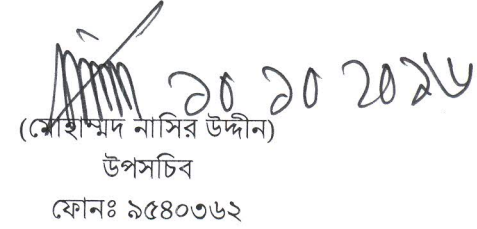 ১০ ১০ ২০১৬
(মোহাম্মদ নাসির উদ্দীন)
উপসচিব
ফোনঃ ৯৫৪০৩৬২